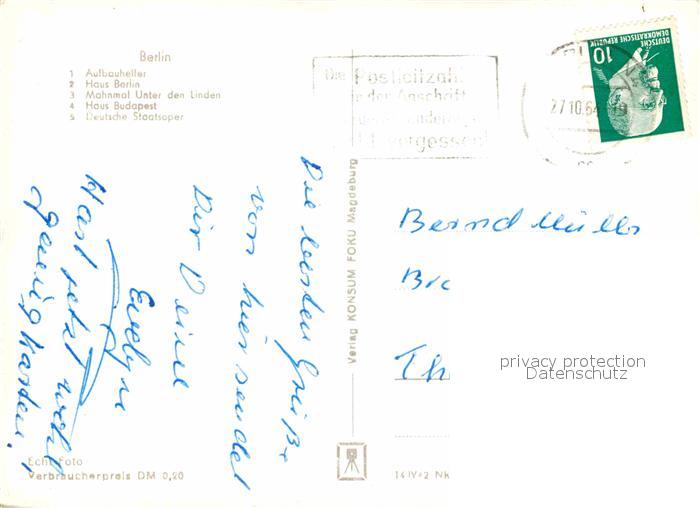 Berlin
1 Aufbauhelfer
2 Haus Berlin
3 Mahnmal Unter den Linden
4 Haus Budapest
5 Deutsche Staatsoper
Die Postleitzahl
in der Anschrift
vergessen!
27.10.64
10
DEUTSCHE
DEMOKRATISCHE REPUBLIK
Die besten Grüße
von hier sendet
Dir Deine
Evelyn
Hast jetzt wohl
genug Karten!
Verlag KONSUM FOKU Magdeburg
Bernd Müller
Bre
Th
privacy protection
Datenschutz
Echt Foto
Verbraucherpreis DM 0,20